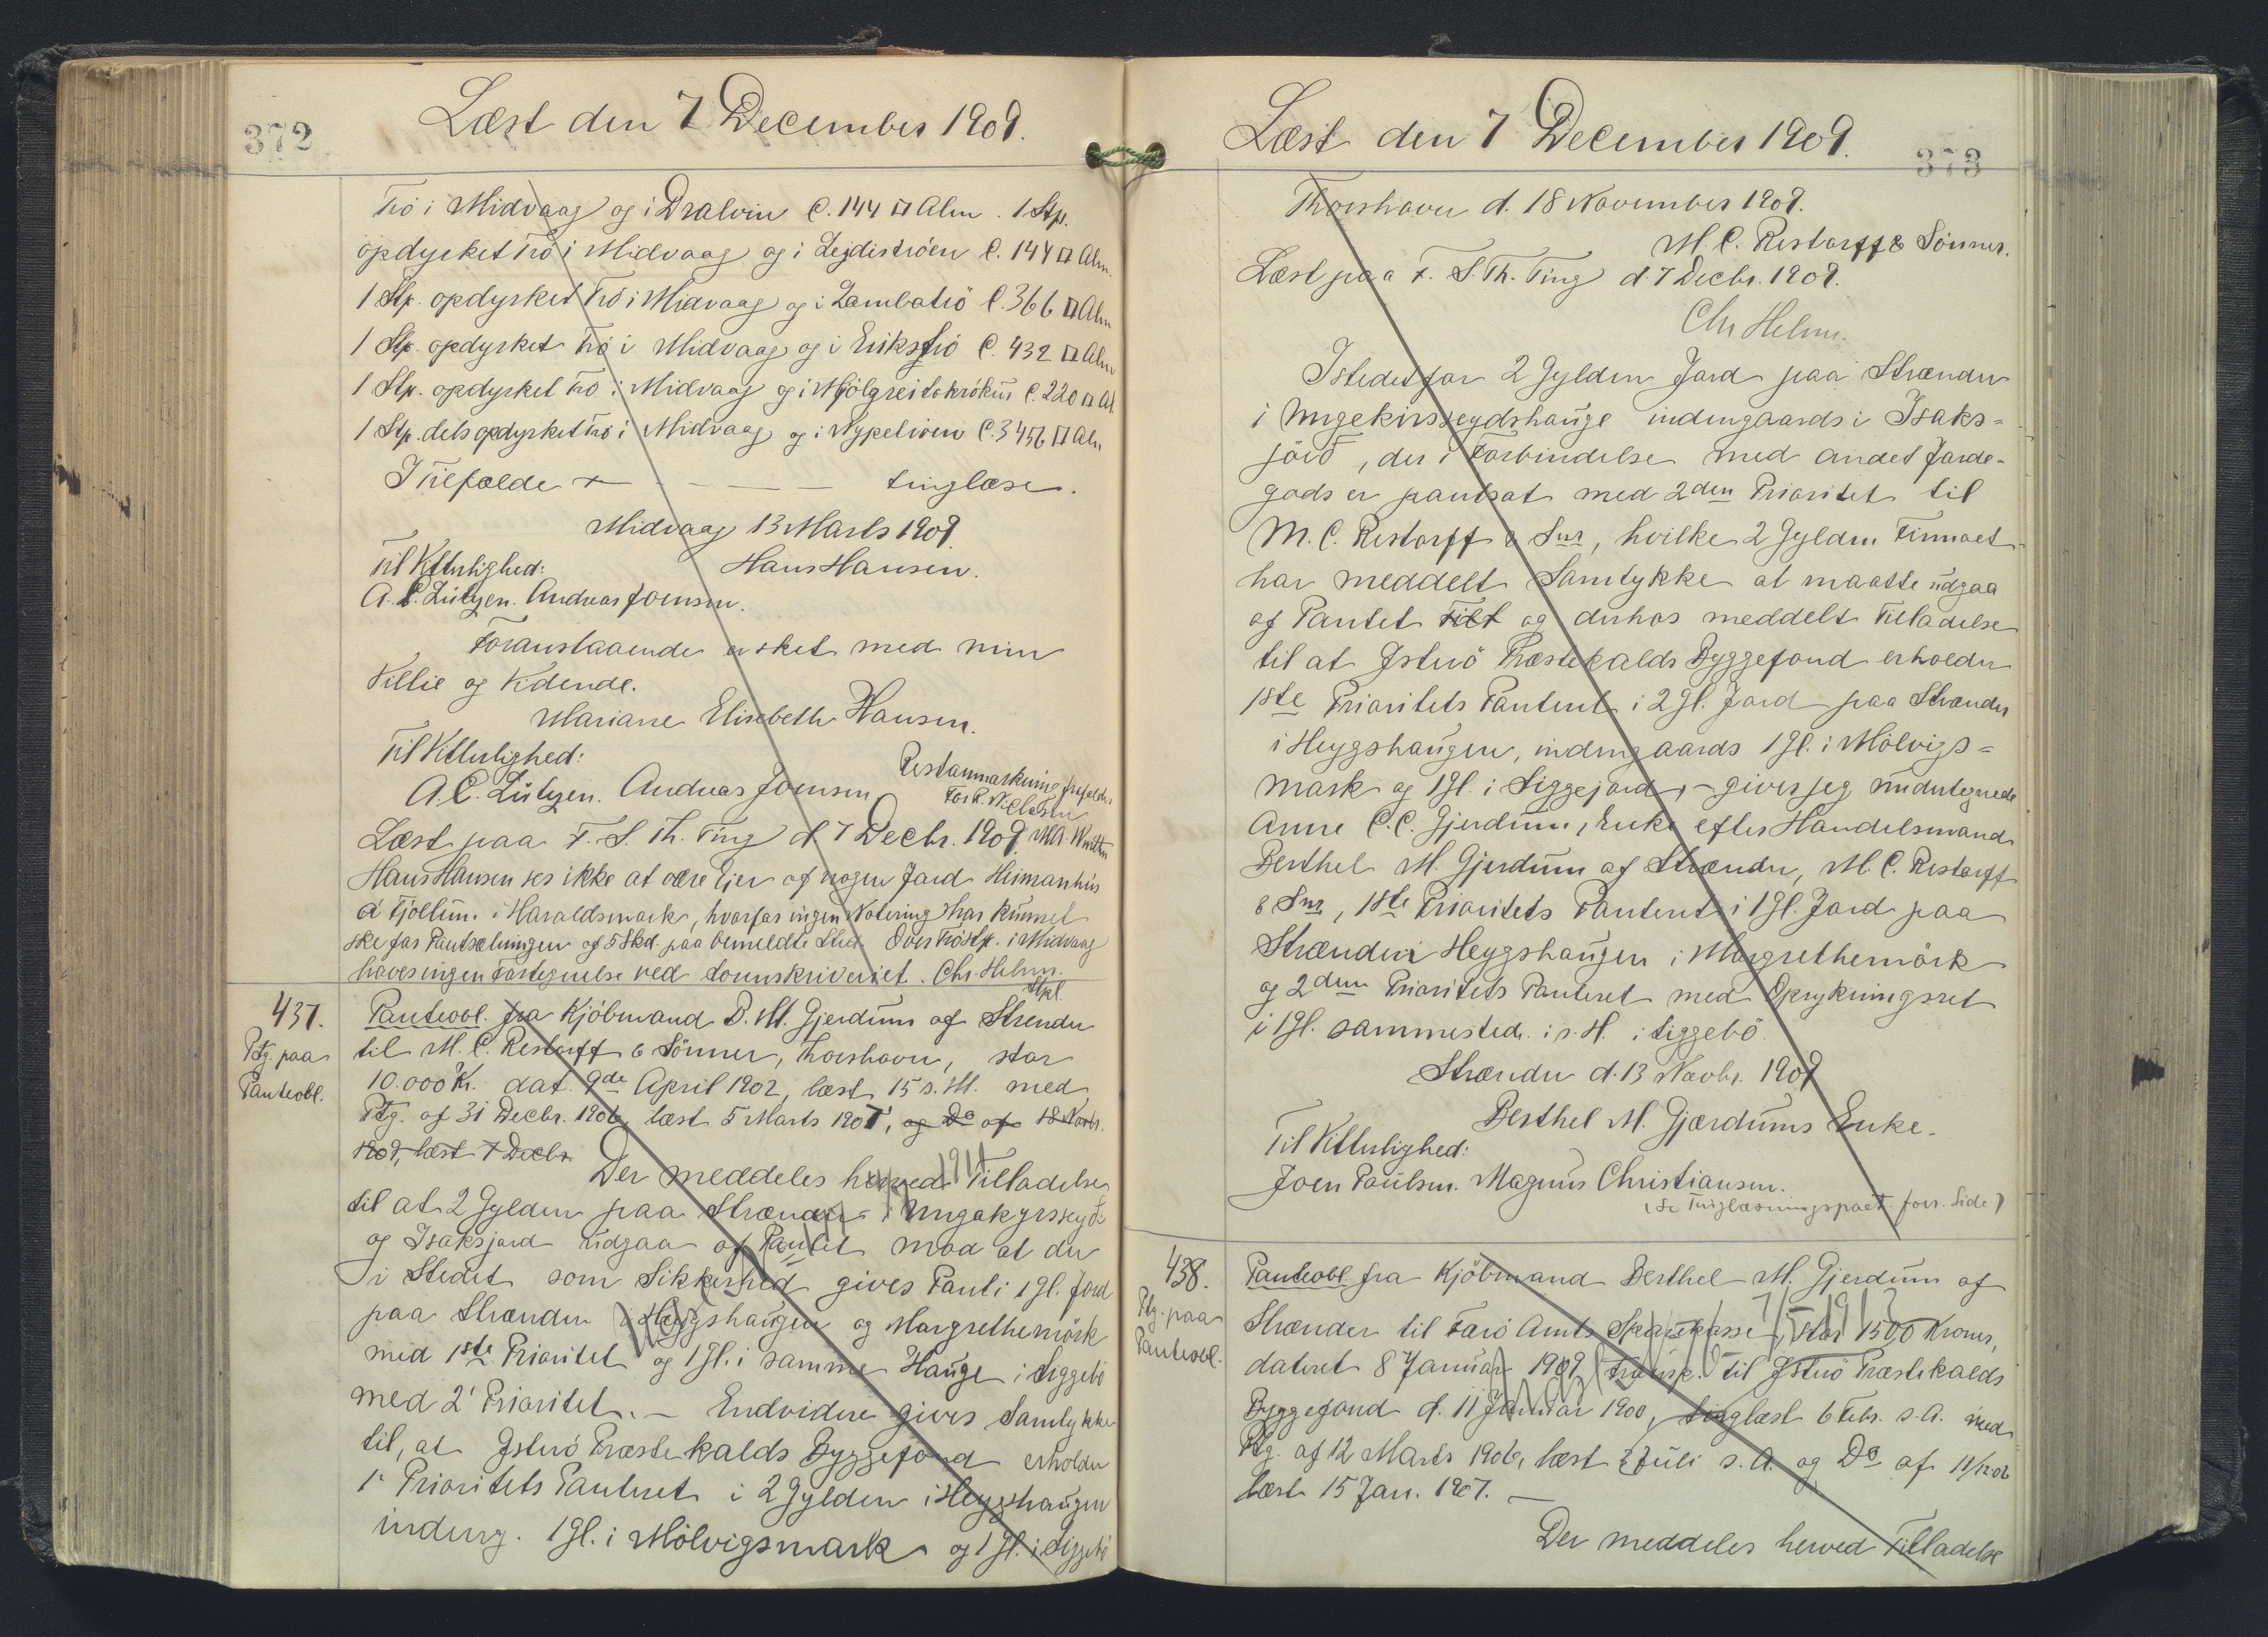 372
Læst den 7 December 1909.
Trö i Midvaag og i Dralvin C. 144 □ Alm. 1 Stp.
opdyrket Trö i Midvaag og i Lejdiströen C. 144 □ Alm.
1 Stp. opdyrket Trö i Midvaag og i Lambatrö C. 366 □ Alm
1 Stp. opdyrket Trö i Midvaag og i Erikströ C. 432 □ Alm
1 Stp. opdyrket Trö i Midvaag og i C. 220 □ Al.
1 Stp. dels opdyrket Trö i Midvaag og i C. 3456 □ Alm
I Tilfælde + - - - tinglæse.
Midvaag 13 Marts 1909.
Til Vitterlighed: Hans Hansen.
A. C. Lützen. Andreas Joensen.
Foranstaaende er sket med min
Villie og Vidende.
Mariane Elisebeth Hansen.
Til Vitterlighed:
A. C. Lützen. Andreas Joensen
Restanmærkning frafaldes
Læst paa F. S. Th. Ting d. 7 Decbr. 1909.
Hans Hansen ses ikke at være Ejer af nogen Jord Heimanhús
á Fjöllum i Haraldsmark, hvorfor ingen Notering har kunnet
ske for Pantsætningen af 5 Skd. paa bemeldte Sted. Over Tröstp. i Midvaag
haves ingen Fortegnelse ved Sorenskriveriet. Chr Helms.
Stpl.
437.
Ptg. paa
Panteobl.
Panteobl. fra Kjöbmand B. M. Gjerdum af Strender
til M. C. Restorff & Sönner, Thorshavn, stor
10.000 Kr. dat. 9de April 1902, læst 15 s. M. med
Ptg. af 31 Decbr. 1906, læst 5 Marts 1907, og Do af 18 Novbr.
1909, læst 7 Decbr.
Der meddeles herved Tilladelse
til at 2 Gylden paa Strænder i
og Isaksjord udgaa af Pantet mod at der
i Stedet som Sikkerhed gives Pant i 1 Gl. Jord
paa Strænder i Heygshaugen og Margrethemörk
med 1ste Prioritet og 1 Gl. i samme Hauge i Siggebö
med 2' Prioritet. – Endvidere gives Samtykke
til, at Österö Præstekalds Byggefond erholder
1' Prioritets Panteret i 2 Gylden i Heygshaugen
indeng. 1 Gl. i Mölvigsmark og 1 Gl. i Siggebö
Læst den 7 December 1909.
373
Thorshavn d. 18 November 1909.
M. C. Restorff & Sönner.
Læst paa F. S. Th. Ting d. 7 Decbr. 1909.
Chr Helms.
Istedetfor 2 Gylden Jord paa Strænder
i hauge indengaards i Isaks=
jörd, der i Forbindelse med andet Jorde-
gods er pantsat med 2den Prioritet til
M. C. Restorff & Snr, hvilke 2 Gylden Firmaet
har meddelt Samtykke at maatte udgaa
af Pantet Til og derhos meddelt Tilladelse
til at Österö Præstekalds Byggefond erholder
1ste Prioritets Panteret i 2 Gl. Jord paa Strænder
i Heygshaugen, indengaards 1 Gl. i Mölvigs=
mark og 1 Gl. i Siggejord, – giver jeg undertegnede
Anne C. C. Gjerdum, Enke efter Handelsmand
Berthel M. Gjerdum af Strænder, M. C. Restorff
& Snr, 1ste Prioritets Panteret i 1 Gl. Jord paa
Strænder i Heygshaugen i Margrethemörk
og 2den Prioritets Panteret med Oprykningsret
i 1 Gl. sammesteds i s. H. i Siggebö
Strænder d. 13 Novbr. 1909
Berthel M. Gjærdums Enke.
Til Vitterlighed:
Joen Poulsen. Magnus Christiansen.
(Se Tinglæsningspaat. forr. Side)
438.
Ptg. paa
Panteobl.
Panteobl. fra Kjöbmand Berthel M. Gjerdum af
Strænder til Færö Amts Sparekasse, stor 1500 Kroner,
dateret 8 Januar 1909, transp. til Österö Præstekalds
Byggefond d. 11 Januar 1900, tinglæst 6 Febr. s. A. med
Ptg. af 12 Marts 1906, læst 3 Juli s. A. og Do af 11/12 06
læst 15 Jan. 1907. –
Der meddeles herved Tilladelse